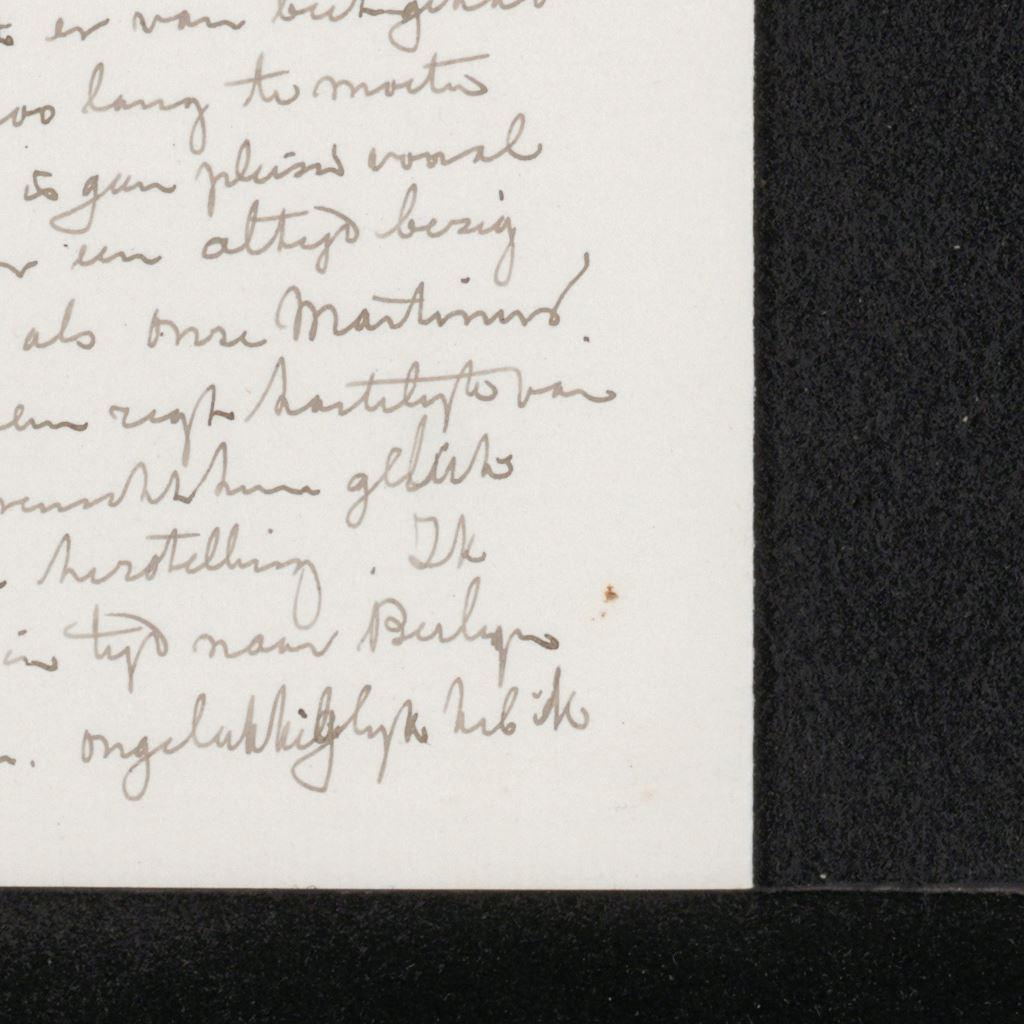 er van
zoo lang te moeten
is geen pleisier vooral
een altijd bezig
als onze Martinus.
een regt hartelijk van
wenscht hem geluk
herstelling. Ik
in tijd naar Berlijn
ongelukkiglijk heb ik